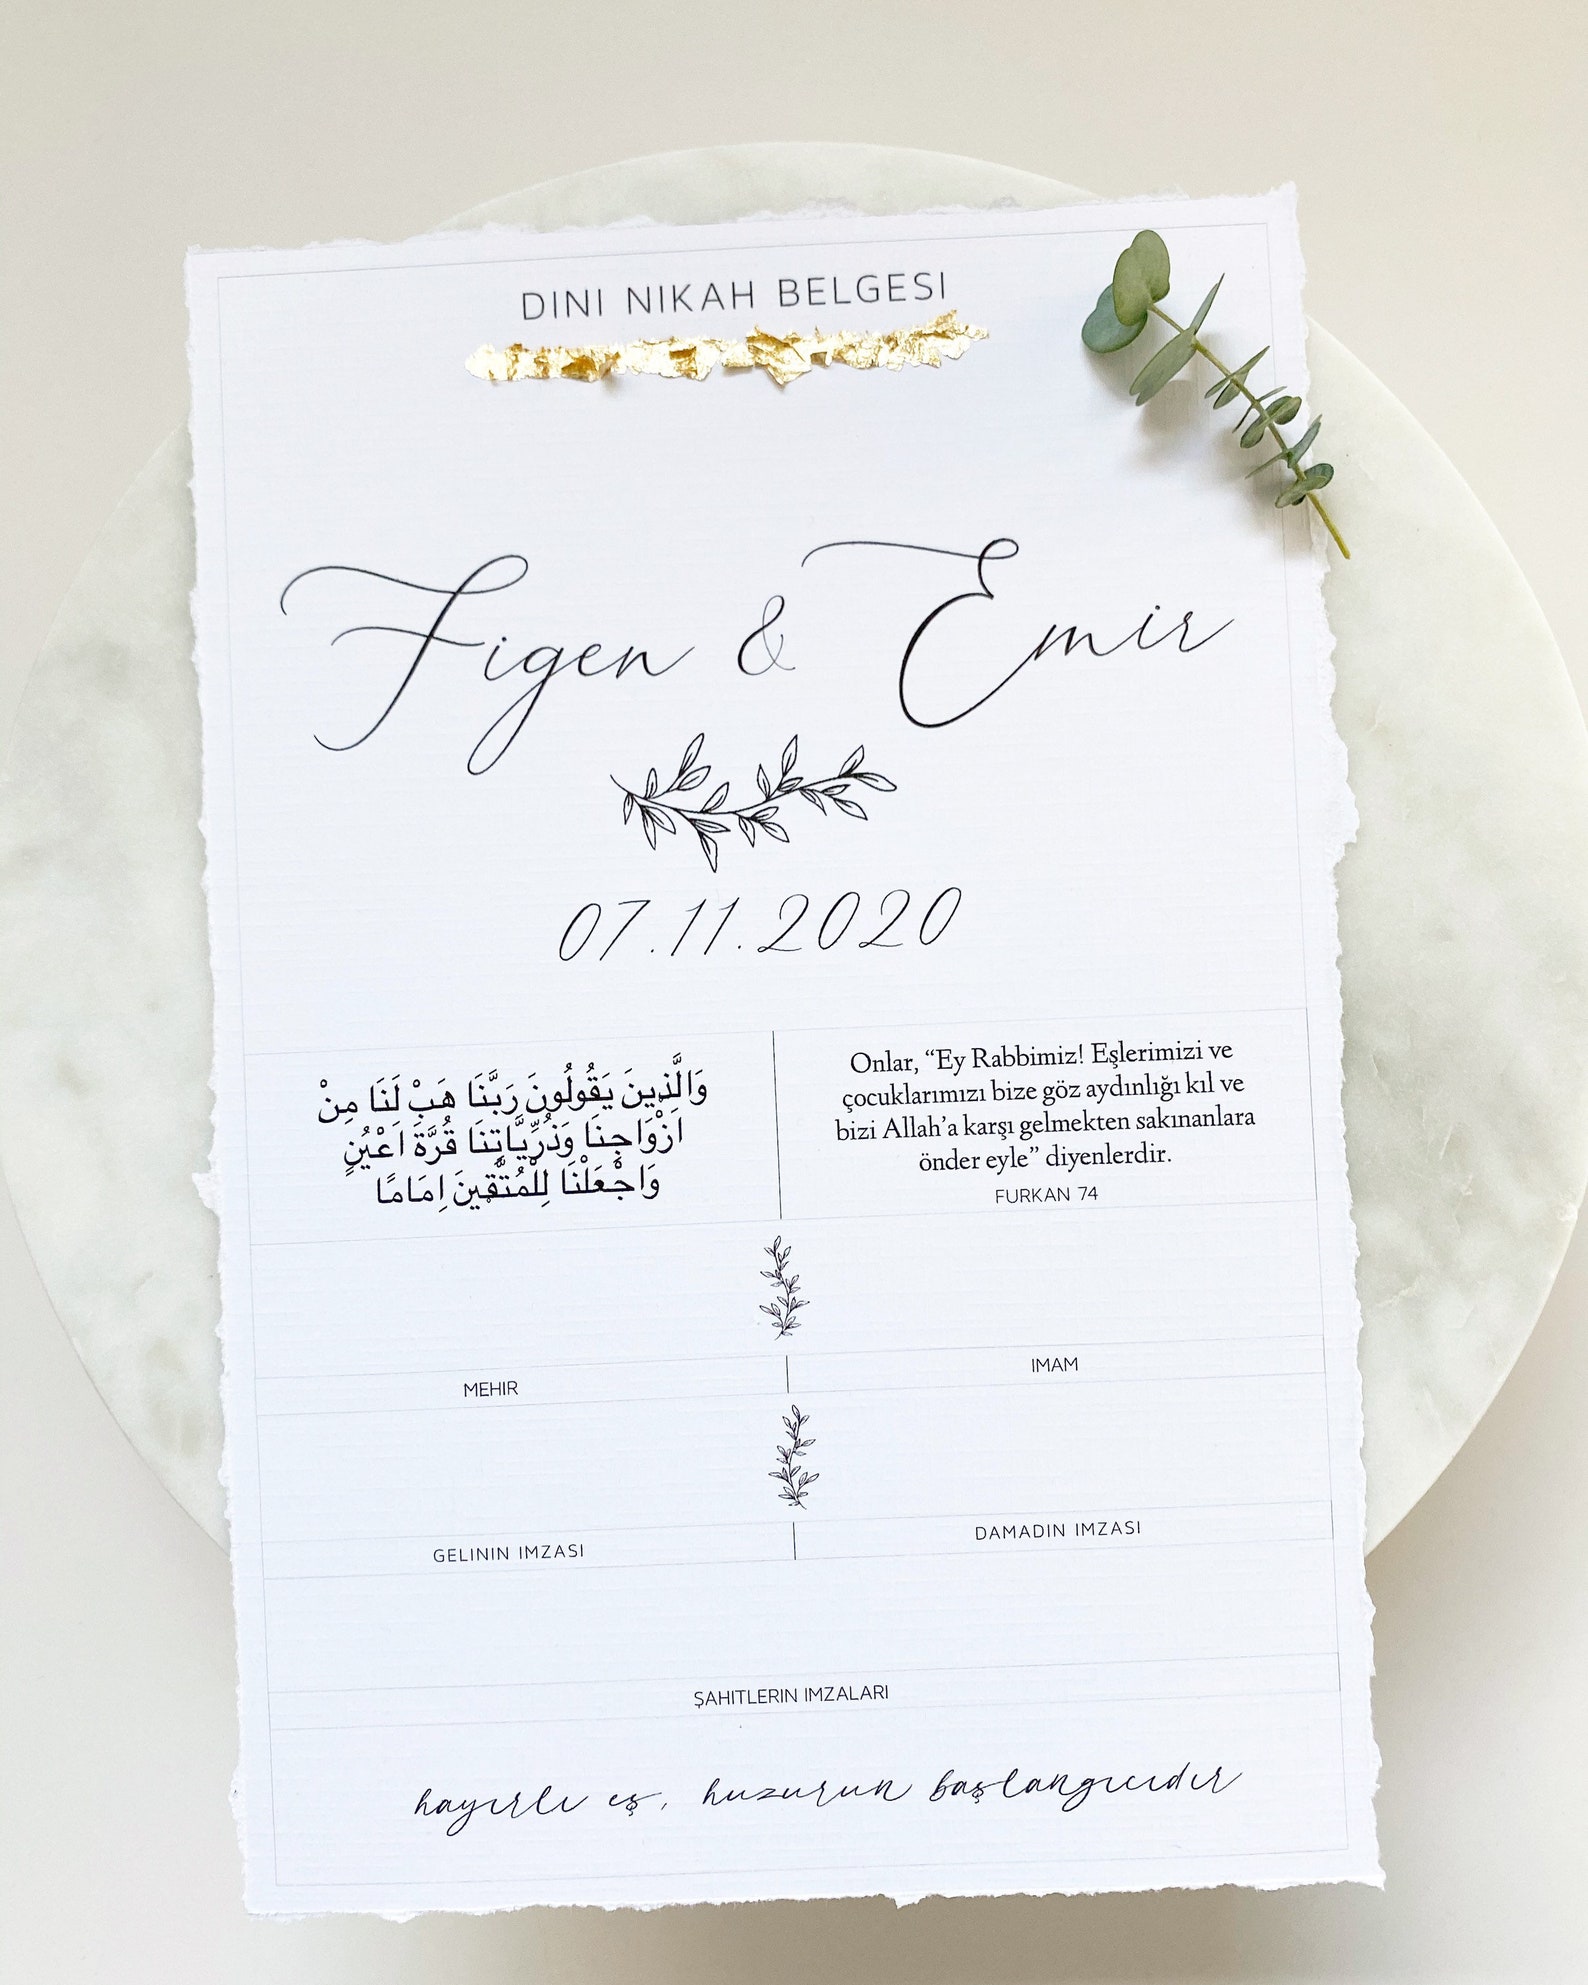 DINI NIKAH BELGESI
Figen & Emir
07.11.2020
وَالَّذِينَ يَقُولُونَ رَبَّنَا هَبْ لَنَا مِنْ
اَزْوَاجِنَا وَذُرِّيَّاتِنَا قُرَّةَ اَعْيُنٍ
وَاجْعَلْنَا لِلْمُتَّقِينَ اِمَامًا
Onlar, “Ey Rabbimiz! Eşlerimizi ve
çocuklarımızı bize göz aydınlığı kıl ve
bizi Allah’a karşı gelmekten sakınanlara
önder eyle” diyenlerdir.
FURKAN 74
MEHIR
IMAM
GELININ IMZASI
DAMADIN IMZASI
ŞAHITLERIN IMZALARI
hayırlı eş, huzurun başlangıcıdır